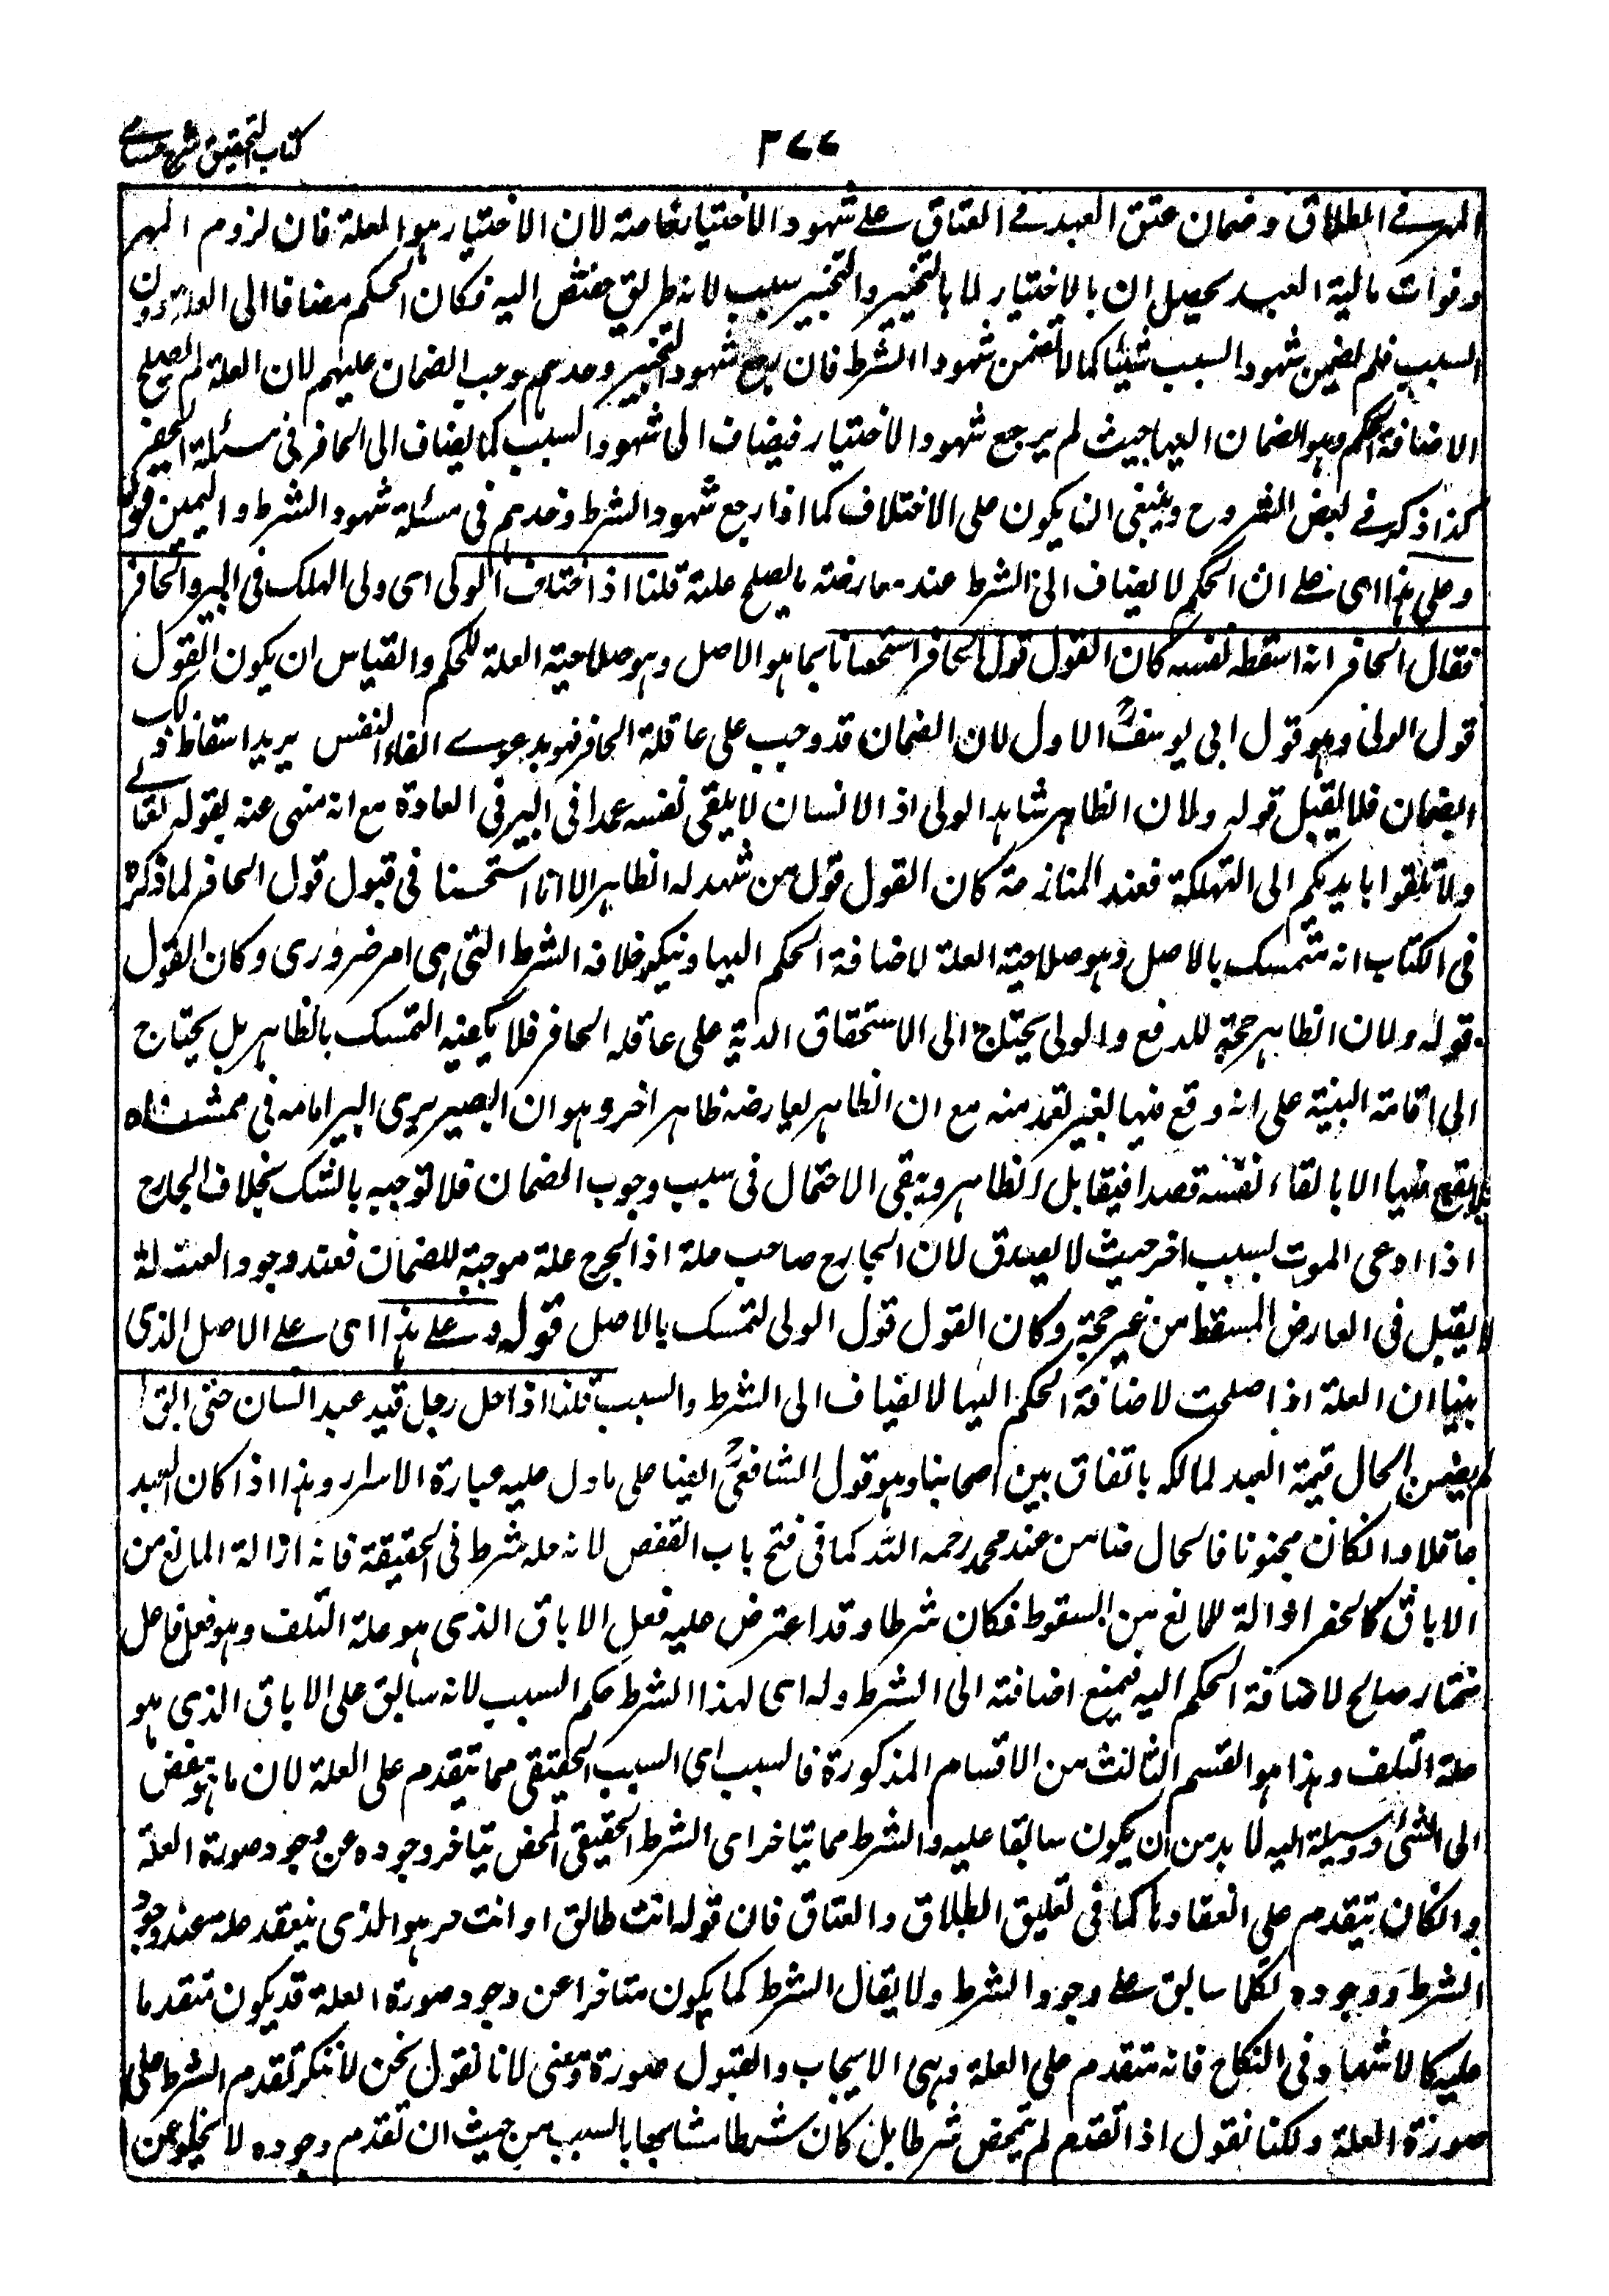 كتاب التحقيق شرح حسامى
٣٧٧
المهر فے الطلاق وضمان عتق العبد فے العتاق علے شهود الاختيار خاصة لان الاختيار هو العلة فان لزوم المهر
وفوات مالية العبد يحصلان بالاختيار لا بالتخيير والتخيير سبب لانه طريق مفض اليه فكان الحكم مضافا الى العلة دون
السبب فلم يضمن شهود السبب شيئا كما لا تضمن شهود الشرط فان رجع شهود التخيير وحدهم وجب الضمان عليهم لان العلة لم تصلح
لاضافة الحكم وهو الضمان اليها حيث لم يرجع شهود الاختيار فيضاف الى شهود السبب كما يضاف الى الحافر فى مسئلة الحفر
كذا ذكر فے بعض الشروح وينبغى ان يكون على الاختلاف كما اذا رجع شهود الشرط وحدهم فى مسئلة شهود الشرط واليمين قوله
وعلى هذا اى علے ان الحكم لا يضاف الى الشرط عند معارضة ما يصلح علة قلنا اذا اختلف الولى اى ولى الهلك فى البير والحافر
فقال الحافر انه اسقط نفسه كان القول قول الحافر استحسانا بما هو الاصل وهو صلاحية العلة للحكم والقياس ان يكون القول
قول الولى وهو قول ابى يوسفؒ الاول لان الضمان قد وجب على عاقلة الحافر فهو بدعوى القاء النفس يريد اسقاط ذلك
الضمان فلا يقبل قوله ولان الظاهر شاهد الولى اذ الانسان لا يلقى نفسه عمدا فى البير فى العادة مع انه منهى عنه بقوله تعالے
ولا تلقوا بايديكم الى التهلكة فعند المنازعة كان القول قول من شهد له الظاهر الا انا استحسنا فى قبول قول الحافر لما ذكره
فى الكتاب انه متمسك بالاصل وهو صلاحية العلة لاضافة الحكم اليها وينكر خلافه الشرط التى هى امر ضرورى وكان القول
قوله ولان الظاهر حجة للدفع والولى يحتاج الى الاستحقاق الدية على عاقلة الحافر فلا يكفيه التمسك بالظاهر بل يحتاج
الى اقامة البينة على انه وقع فيها بغير تعمد منه مع ان الظاهر يعارضه ظاهر اخر وهو ان البصير يرى البير امامه فى ممشاه
فلا يقع فيها الا بالقاء نفسه قصدا فيقابل الظاهر ويبقى الاحتمال فى سبب وجوب الضمان فلا توجبه بالشك بخلاف الجارح
اذا ادعى الموت بسبب اخر حيث لا يصدق لان الجارح صاحب علة اذ الجرح علة موجبة للضمان فعند وجود العلة
لا يقبل فى العارض المسقط من غير حجة وكان القول قول الولى لتمسك بالاصل قوله وعلے هذا اى علے الاصل الذى
بينا ان العلة اذا صلحت لاضافة الحكم اليها لا يضاف الى الشرط والسبب قلنا اذا حل رجل قيد عبد انسان حتى ابق
لم يضمن الحال قيمة العبد لمالكه باتفاق بين اصحابنا وهو قول الشافعىؒ ايضا على ما دل عليه عبارة الاسرار وهذا اذا كان العبد
عاقلا وانكان مجنونا فالحال ضامن عند محمد رحمه الله كما فى فتح باب القفص لانه حله شرط فى الحقيقة فانه ازالة المانع من
الاباق كالحفر ازالة للمانع من السقوط فكان شرطا وقد اعترض عليه فعل الاباق الذى هو علة التلف وهو فعل فاعل
مختار صالح لاضافة الحكم اليه فيمنع اضافته الى الشرط وله اى لهذا الشرط حكم السبب لانه سابق على الاباق الذى هو
علة التلف وهذا هو القسم الثالث من الاقسام المذكورة فالسبب اى السبب الحقيقى مما يتقدم على العلة لان ما هو مفض
الى الشئ ووسيلة اليه لا بد من ان يكون سابقا عليه والشرط مما يتاخر اى الشرط الحقيقى المحض يتاخر وجوده عن وجود صورة العلة
وانكان يتقدم على انعقادها كما فى تعليق الطلاق والعتاق فان قوله انت طالق او انت حر هو الذى ينعقد علة عند وجود
الشرط ووجوده تكلما سابق علے وجود الشرط ولا يقال الشرط كما يكون متاخرا عن وجود صورة العلة قد يكون متقدما
عليه كالاشهاد فى النكاح فانه متقدم على العلة وهى الايجاب والقبول صورة ومعنى لانا نقول نحن لا ننكر تقدم الشرط على
صورة العلة ولكنا نقول اذا تقدم لم يتمحض شرطا بل كان شرطا مشابها بالسبب من حيث ان تقدم وجوده لا يخلو عن